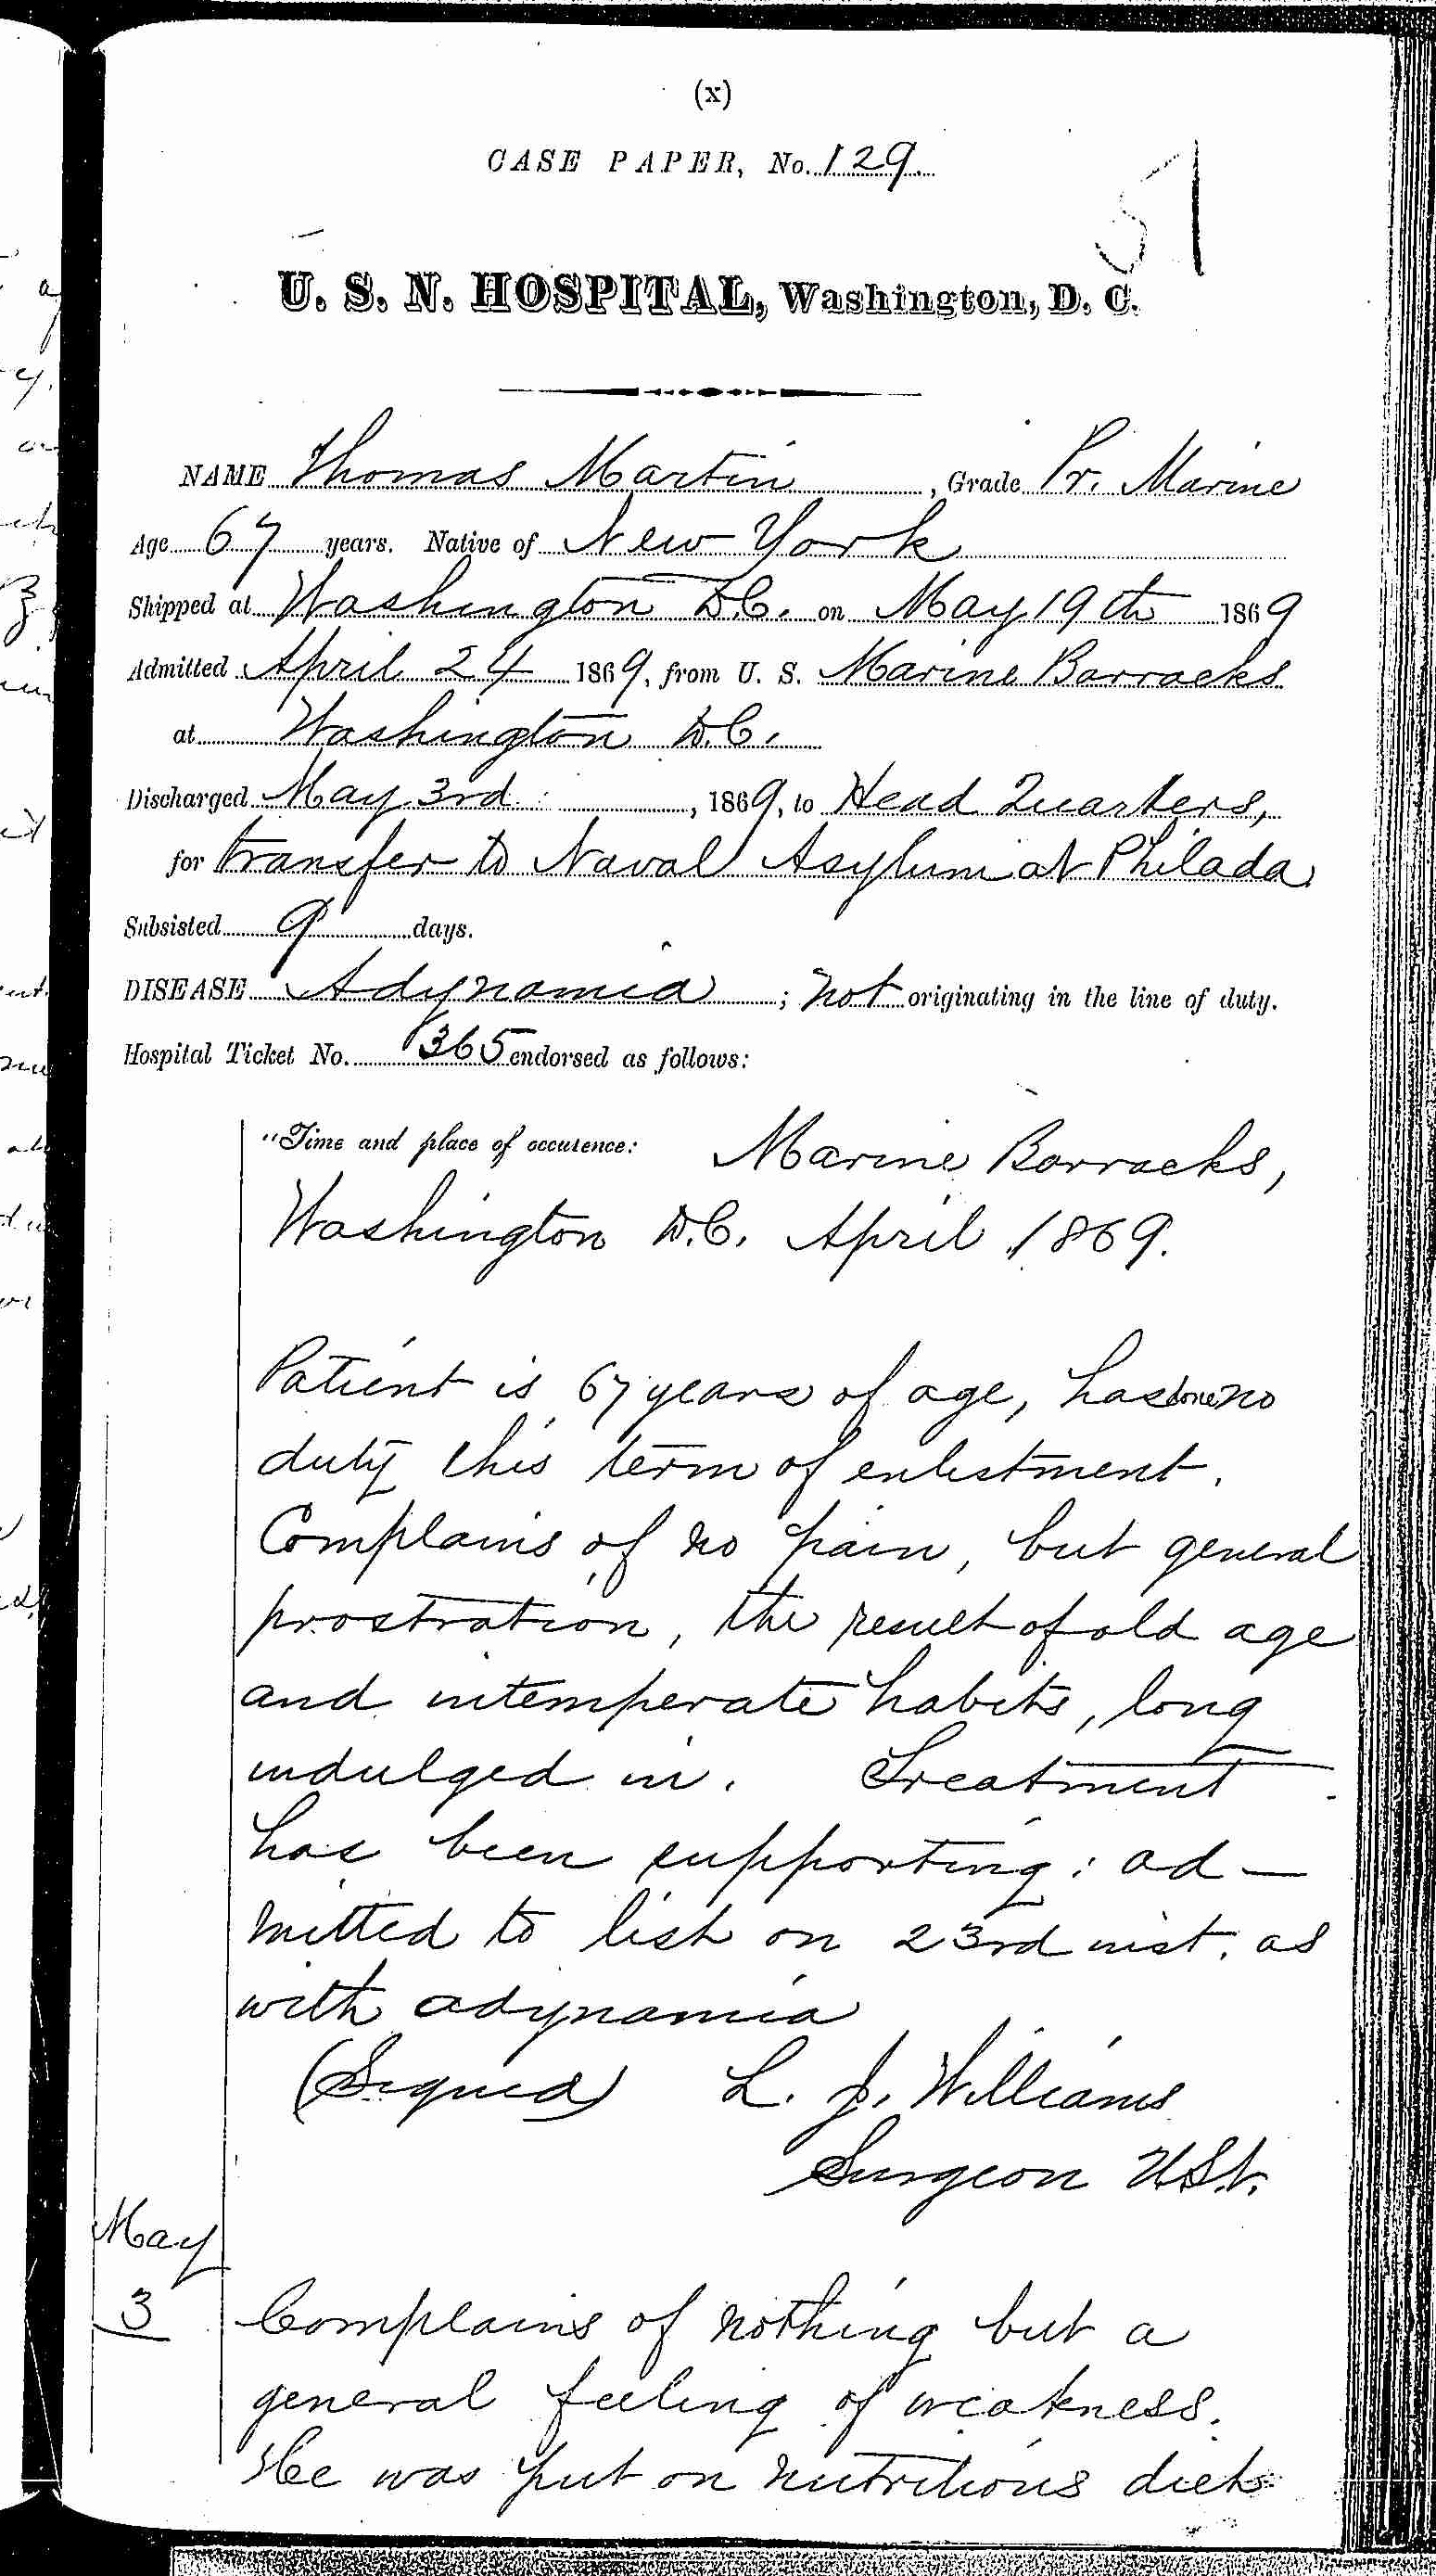 (x)
CASE PAPER, No. 129.
51
U. S. N. HOSPITAL, Washington, D. C.
NAME Thomas Martin, Grade Pr. Marine
Age 67 years. Native of New York
Shipped at Washington D.C. on May 19th 1869
Admitted April 24 1869, from U. S. Marine Barracks
at Washington D.C.
Discharged May 3rd, 1869, to Head Quarters,
for transfer to Naval Asylum at Philada.
Subsisted 9 days.
DISEASE Adynamia; Not originating in the line of duty.
Hospital Ticket No. 365 endorsed as follows:
"Time and place of occurence: Marine Barracks,
Washington D.C. April 1869.
Patient is 67 years of age, has done no
duty this term of enlistment.
Complains of no pain, but general
prostration, the result of old age
and intemperate habits, long
indulged in. Treatment
has been supporting: ad-
mitted to list on 23rd inst. as
with adynamia
(Signed) L. J. Williams
Surgeon U.S.N.
May
3 Complains of nothing but a
general feeling of weakness.
He was put on nutritious diet